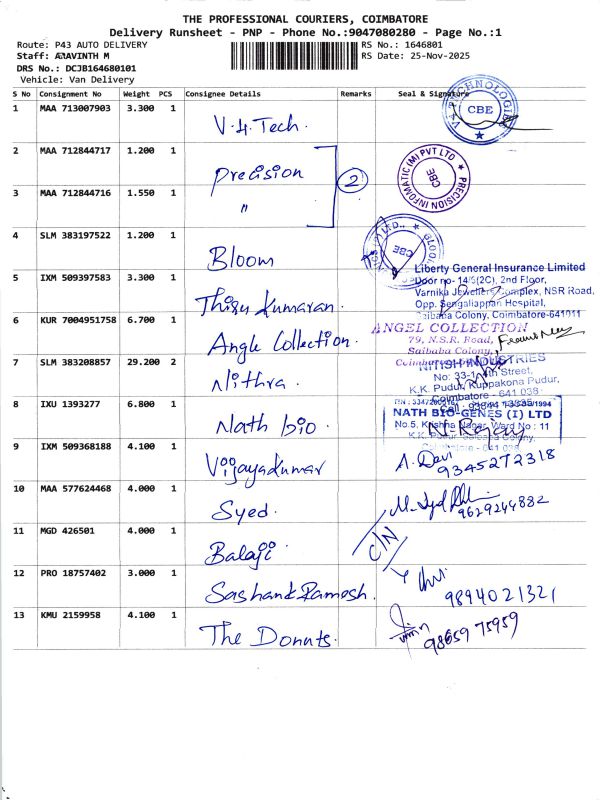 THE PROFESSIONAL COURIERS, COIMBATORE
Delivery Runsheet - PNP - Phone No.:9047080280 - Page No.:1
Route: P43 AUTO DELIVERY RS No.: 1646801
Staff: ARAVINTH M RS Date: 25-Nov-2025
DRS No.: DCJB164680101
Vehicle: Van Delivery
S No Consignment No Weight PCS Consignee Details Remarks Seal & Signature
1 MAA 713007903 3.300 1 V.H.Tech. CBE
2 MAA 712844717 1.200 1 Precision 2 PRECISION INFOMATIC (M) PVT LTD CBE
3 MAA 712844716 1.550 1 "
4 SLM 383197522 1.200 1 Bloom CBE
5 IXM 509397583 3.300 1 Thirukumaran.
Liberty General Insurance Limited
Door no- 14/5(2C), 2nd Floor,
Varnika Jewellers Complex, NSR Road,
Opp. Sengaliappan Hospital,
Saibaba Colony, Coimbatore-641011
6 KUR 7004951758 6.700 1 Angle Collection.
ANGEL COLLECTION
79, N.S.R. Road,
Saibaba Colony,
7 SLM 383208857 29.200 2 Nithra.
NITISH INDUSTRIES
No: 33-1, Street,
K.K. Pudur, Kuppakona Pudur,
Coimbatore - 641 038
8 IXU 1393277 6.800 1 Nath bio
NATH BIO-GENES (I) LTD
No.5, Krishna Nagar, Ward No : 11
K.K. Pudur, Saibaba Colony,
9 IXM 509368188 4.100 1 Vijayakumar A. Devi
9345272318
10 MAA 577624468 4.000 1 Syed.
9629244882
11 MGD 426501 4.000 1 Balaji C/N
12 PRO 18757402 3.000 1 Sashank Ramesh.
9894021321
13 KMU 2159958 4.100 1 The Donuts.
98659 75959